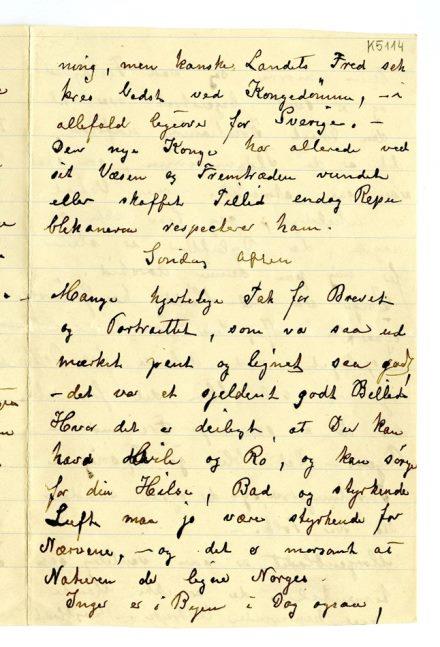 K5114
ning, men kanske Landets Fred sik
kres bedst ved Kongedömme, – i
allefald ligeover for Sverige. –
Den nye Konge har allerede ved
sit Væsen og Fremtræden vundet
eller skaffet Tillid endog Repu
blikanerne respecterer ham.
Söndag aften
Mange hjertelige Tak for Brevet
og Portraittet, som va saa ud
mærket pent og lignet saa godt
– det var et sjeldent godt Billede
Hvor det er deiligt, at Du kan
have Hvile og Ro, og kan sörge
for din Helse, Bad og styrkende
Luft maa jo være styrkende for
Nærverne, – og det er morsomt at
Naturen der ligne Norges.
Inger er i Byen i Dag ogsaa,